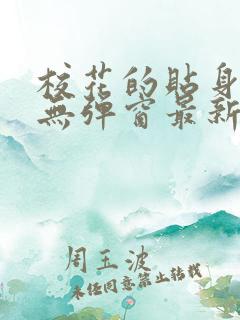 校花的贴身
無弹窗最新
周玉波
未经同意禁止转载